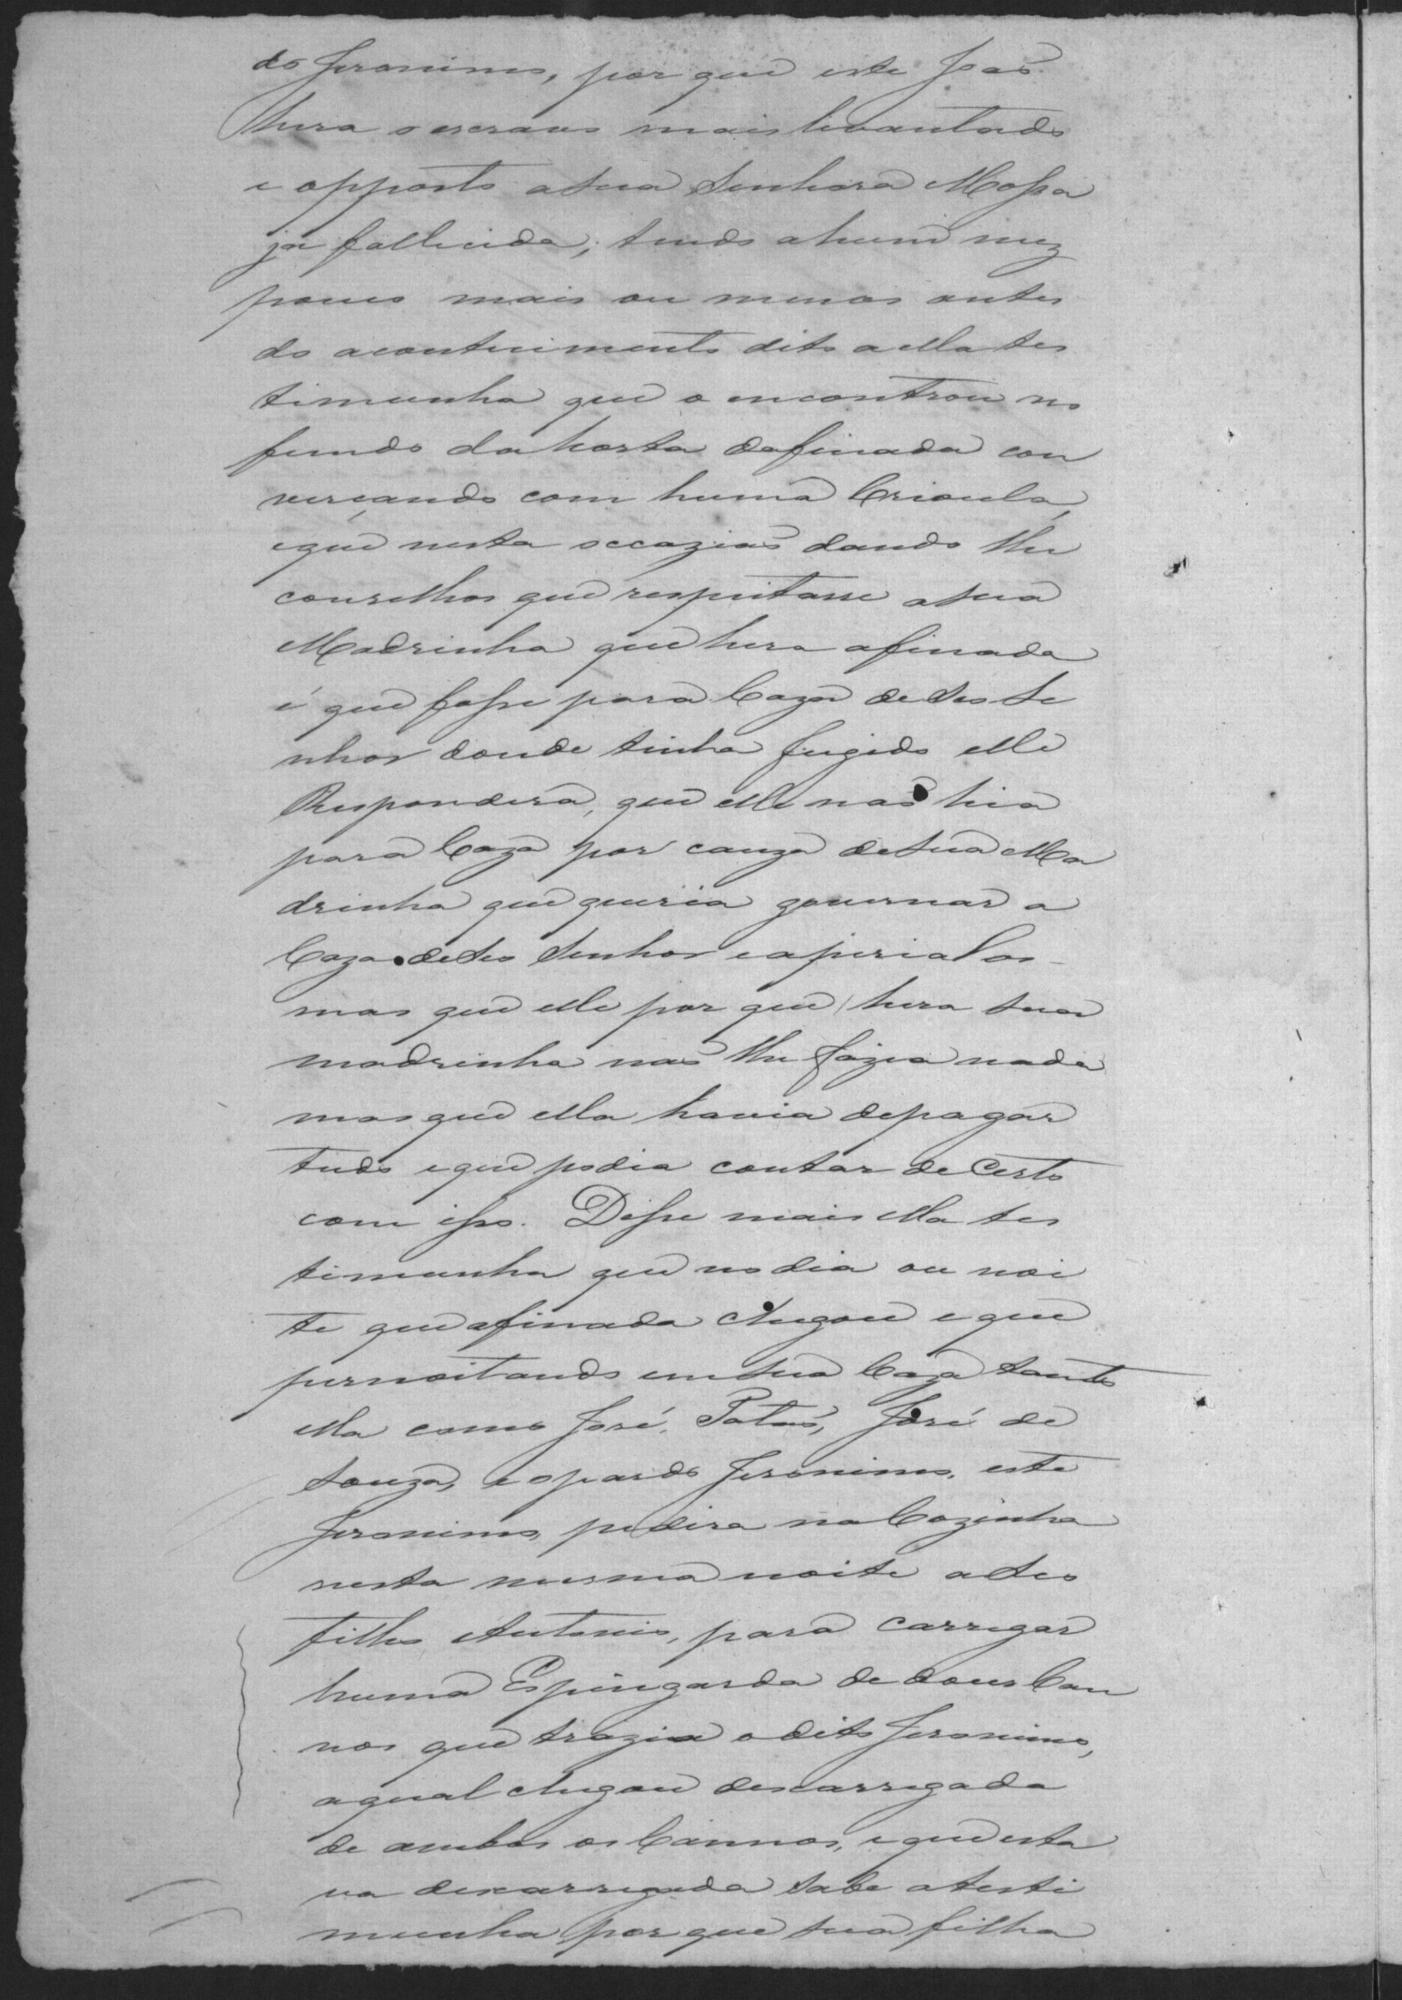 do Jeronimo, por que este Joaõ
hera o escravo mais levantado
e opposto a sua Senhora Mossa
já fallicida; tendo a hum mez
pouco mais ou menos antes
do acontecimento dito a ella tes
timunha que o encontrou no
fundo da horta dafinada con
verçando com huma Crioula,
eque nesta occaziaõ dando lhe
conselhos que respeitasse a sua
Madrinha que hera afinada
é que fosse para Caza de seo Se
nhor donde tinha fugido elle
Respondera, que elle naõ hia
para Caza por cauza de sua Ma
drinha que queria governar a
Caza de seo Senhor e
mas que elle por que hera sua
madrinha naõ lhe fazia nada
mas que ella havia de pagar
tudo e que podia contar de Certo
com isso. Disse mais ella tes
timunha que no dia ou noi
te que afinada chegou e que
pernoitando em sua Caza tanto
ella como José, José de
Souza, e o pardo Jeronimo, este
Jeronimo, pedira na Cozinha
nesta mesma noite a seo
filho Antonio, para carregar
huma Espingarda de dous Can
nos que trazia o dito Jeronimo,
a qual chegou descarregada
de ambos os Cannos, e que esta
va descarregada sabe a testi
munha por que sua filha